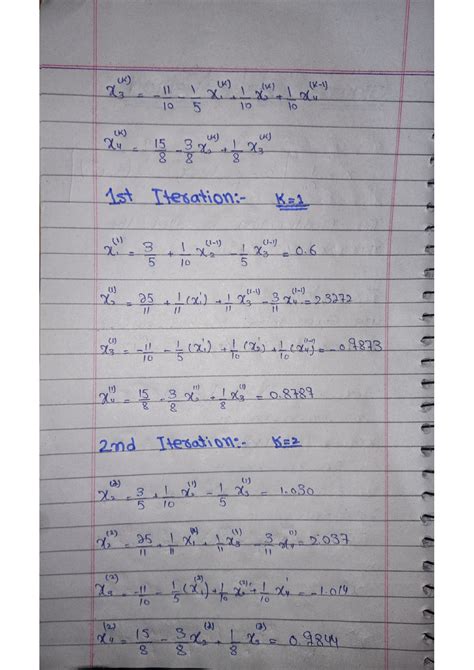 x₃^(K) = -11/10 - 1/5 x₁^(K) + 1/10 x₂^(K) + 1/10 x₄^(K-1)
x₄^(K) = 15/8 - 3/8 x₂^(K) + 1/8 x₃^(K)
1st Iteration:- K=1
x₁^(1) = 3/5 + 1/10 x₂^(1-1) - 1/5 x₃^(1-1) = 0.6
x₂^(1) = 25/11 + 1/11 (x₁') + 1/11 x₃^(1-1) - 3/11 x₄^(1-1) = 2.3272
x₃^(1) = -11/10 - 1/5 (x₁') + 1/10 (x₂') + 1/10 (x₄^(1-1)) = -0.9873
x₄^(1) = 15/8 - 3/8 x₂^(1) + 1/8 x₃^(1) = 0.8789
2nd Iteration:- K=2
x₂^(2) = 3/5 + 1/10 x₂^(1) - 1/5 x₃^(1) = 1.030
x₂^(2) = 25/11 + 1/11 x₁^(2) + 1/11 x₃^(1) - 3/11 x₄^(1) = 2.037
x₄^(2) = -11/10 - 1/5 (x₁^(2)) + 1/10 x₂^(2) + 1/10 x₄' = -1.014
x₄^(2) = 15/8 - 3/8 x₂^(2) + 1/8 x₃^(2) = 0.9844